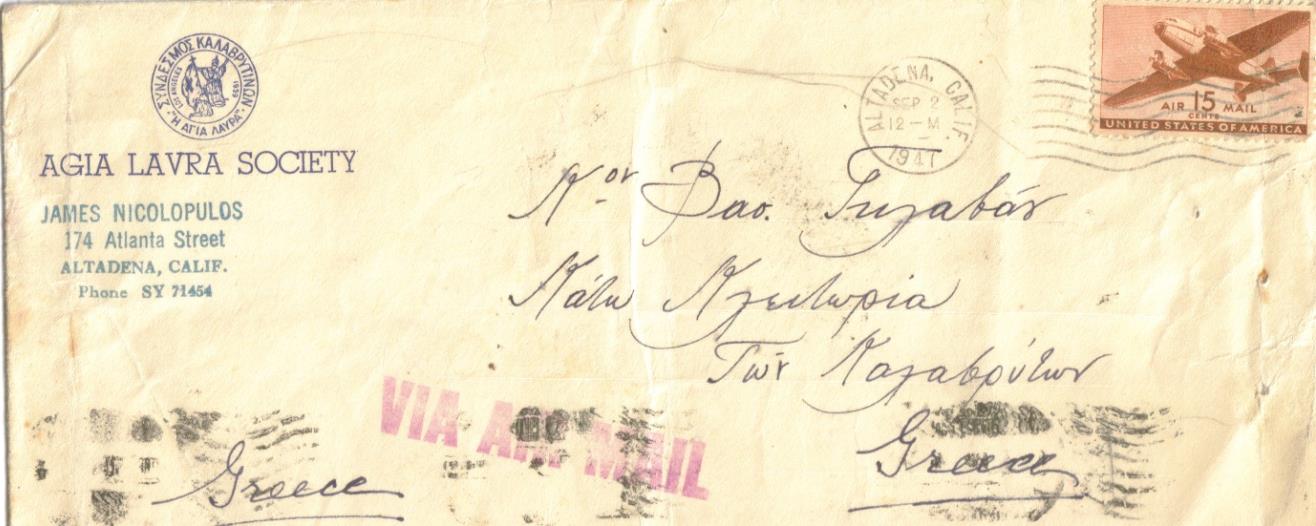 ΣΥΝΔΕΣΜΟΣ ΚΑΛΑΒΡΥΤΙΝΩΝ
LOS ANGELES
"Η ΑΓΙΑ ΛΑΥΡΑ"
AGIA LAVRA SOCIETY
JAMES NICOLOPULOS
174 Atlanta Street
ALTADENA, CALIF.
Phone SY 71454
ALTADENA, CALIF.
SEP 2
12 - M
1947
AIR 15 MAIL
CENTS
UNITED STATES OF AMERICA
Κον Βασ.
Κάτω Κλειτωρία
Τῶν Καλαβρύτων
Greece
VIA AIR MAIL
Greece